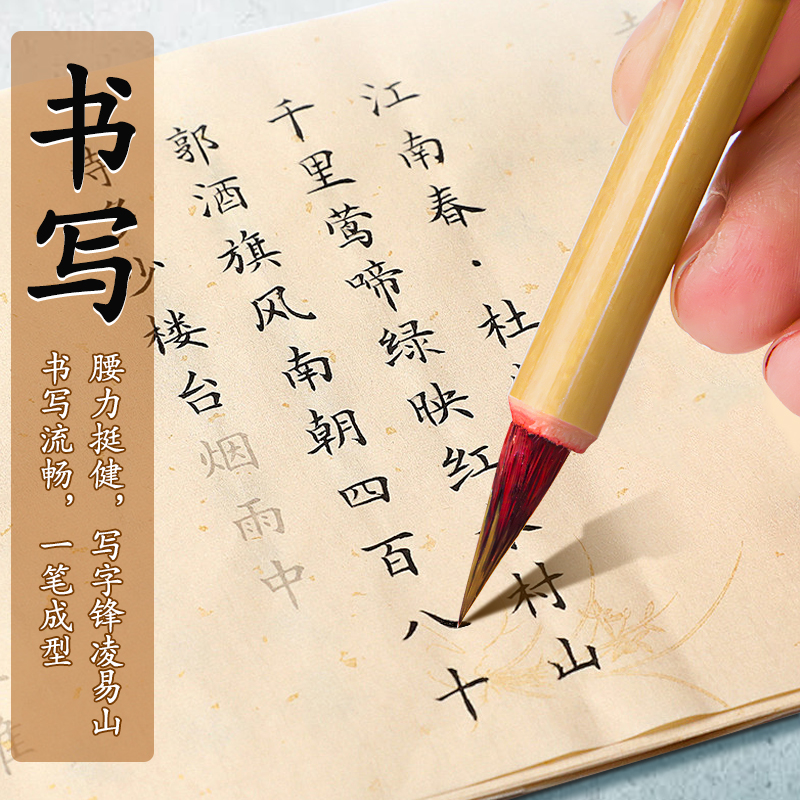 书写
腰力挺健，写字锋凌易山
书写流畅，一笔成型
江南春·杜
千里莺啼绿映红村山
郭酒旗风南朝四百八十
寺少楼台烟雨中